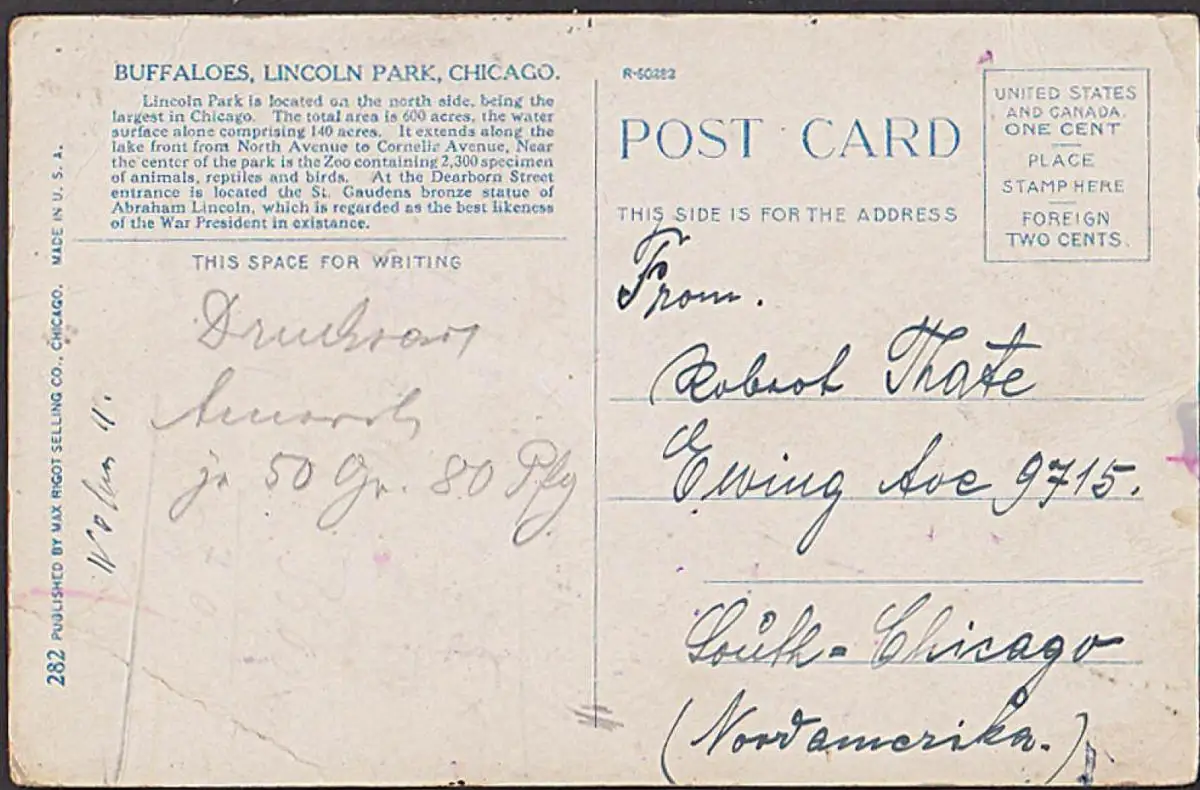 BUFFALOES, LINCOLN PARK, CHICAGO.
Lincoln Park is located on the north side, being the
largest in Chicago. The total area is 600 acres, the water
surface alone comprising 140 acres. It extends along the
lake front from North Avenue to Cornelia Avenue, Near
the center of the park is the Zoo containing 2,300 specimen
of animals, reptiles and birds. At the Dearborn Street
entrance is located the St. Gaudens bronze statue of
Abraham Lincoln, which is regarded as the best likeness
of the War President in existance.
THIS SPACE FOR WRITING
je 50 Gr. 80 Pfg
282 PUBLISHED BY MAX RIGOT SELLING CO., CHICAGO. MADE IN U. S. A.
R-50882
POST CARD
THIS SIDE IS FOR THE ADDRESS
UNITED STATES
AND CANADA
ONE CENT
PLACE
STAMP HERE
FOREIGN
TWO CENTS.
From.
Robert Thate
Ewing Ave 9715.
South-Chicago
(Nordamerika.)